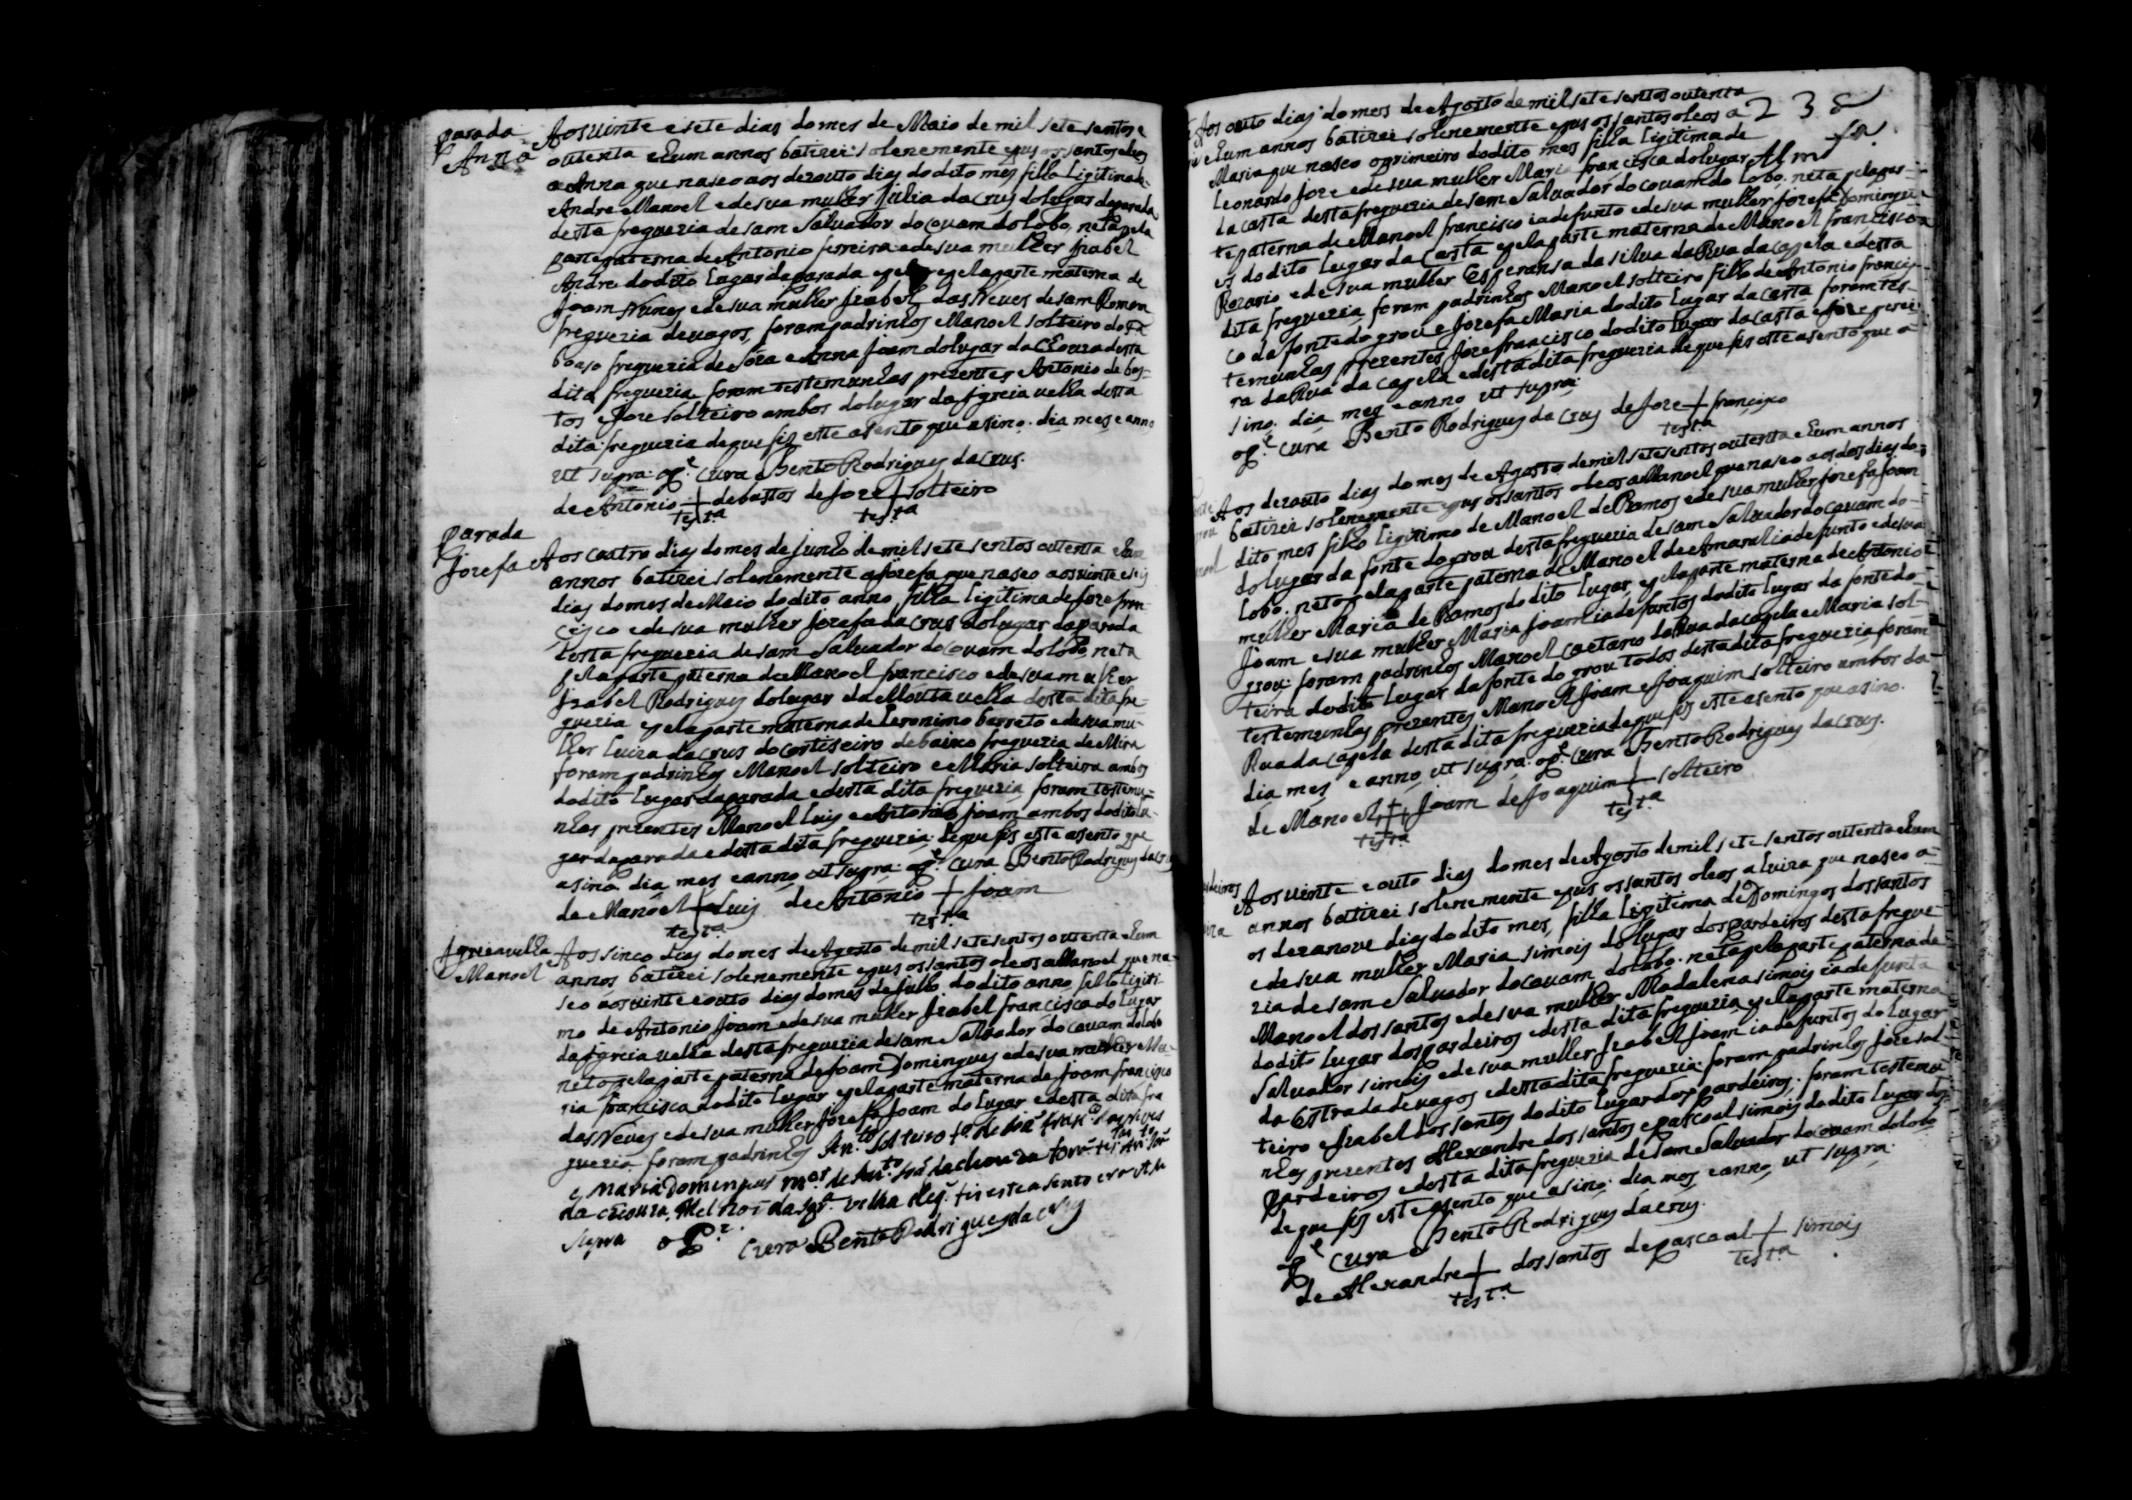 parada
Anna
Aos vinte e sete dias do mes de Maio de mil sete sentos e
outenta e hum annos batizei solenemente e pus os santos oleos
a Anna que naseo aos dezouto dias do dito mes filha Ligitima de
Andre Manoel e de sua mulher Julia da Crus do lugar da parada
desta freguezia de sam Salvador do Covam do Lobo, neta pela
parte paterna de Antonio ferreira e de sua mulher Izabel
Andre do dito Lugar da parada e pela parte materna de
Joam Nunes e de sua mulher Izabel das Neves de sam Romam
freguezia de vagos, foram padrinhos Manoel solteiro do
boaso freguezia de Soza e Anna Joam do lugar da Chouza desta
dita freguezia foram testemunhas prezentes Antonio de bas-
tos e Joze solteiro ambos do lugar da Jgreia velha desta
dita freguezia de que fis este asento que asino. dia mes e anno
ut supra. o P.e Cura Bento Rodrigues da Crus.
de Antonio + de bastos de Joze + solteiro
test.a test.a
parada
Jozefa
Aos coatro dias do mes de Junho de mil sete sentos outenta e hum
annos batizei solenemente a Jozefa que naseo aos vinte e seis
dias do mes de Maio do dito anno, filha Ligitima de Joze fran-
cisco e de sua mulher Jozefa da Crus do lugar da parada
desta freguezia de sam Salvador do Covam do Lobo, neta
pela parte paterna de Manoel francisco e de sua mulher
Izabel Rodrigues do lugar da Mouta velha desta dita fre-
guezia e pela parte materna de Leronimo barreto e de sua mu-
lher Luiza da Crus do cortiseiro de baixo freguezia de Mira
foram padrinhos Manoel solteiro e Maria solteira ambos
do dito Lugar da parada e desta dita freguezia foram testemu-
nhas prezentes Manoel Luis e Antonio Joam ambos do dito Lu-
gar da parada e desta dita freguezia de que fis este asento que
asino dia mes e anno ut supra. o P.e Cura Bento Rodrigues da Crus
de Manoel + Luis de Antonio + Joam
test.a test.a
Jgreia velha
Manoel
Aos sinco dias do mes de Agosto de mil sete sentos outenta e hum
annos batizei solenemente e pus os santos oleos a Manoel que na-
seo aos vinte e outo dias do mes de Julho do dito anno, filho Ligiti-
mo de Antonio Joam e de sua mulher Izabel francisca do Lugar
da Jgreia velha desta freguezia de sam Salvador do Covam do Lobo
neto pela parte paterna de Joam Domingues e de sua mulher Ma-
ria francisca do dito Lugar e pela parte materna de Joam francisco
das Neves e de sua mulher Jozefa Joam do Lugar e desta dita fre
guezia foram padrinhos An.to solteiro f.o de Joam das Neves
e Maria Domingues m.er de An.to da chouza
da chouza, M.el da Igr.a velha de q. fis este asento era ut
supra o P.e Cura Bento Rodrigues da Crus
238
Aos outo dias do mes de Agosto de mil sete sentos outenta
e hum annos batizei solenemente e pus os santos oleos a
Maria que naseo o primeiro do dito mes filha Ligitima de
Leonardo Joze e de sua mulher Maria francisca do lugar
da Casta desta freguezia de sam Salvador do Covam do Lobo, neta pela par-
te paterna de Manoel francisco ia defunto e de sua mulher Jozefa Domingu-
es do dito Lugar da Casta e pela parte materna de Manoel francisco
Rozario e de sua mulher Esperansa da silva da Rua da capela e desta
dita freguezia, foram padrinhos Manoel solteiro filho de Antonio francis-
co da fonte do grou e Jozefa Maria do dito Lugar da Casta foram tes-
temunhas prezentes Joze francisco do dito Lugar da Casta e Joze perei-
ra da Rua da capela e desta dita freguezia de que fis este asento que a-
sino. dia mes e anno ut supra.
o P.e Cura Bento Rodrigues da Crus de Joze + francisco
test.a
Aos dezouto dias do mes de Agosto de mil sete sentos outenta e hum annos
batizei solenemente e pus os santos oleos a Manoel que naseo aos dos dias do
dito mes filho Ligitimo de Manoel de Ramos e de sua mulher Jozefa Joam
do lugar da fonte do grou desta freguezia de sam Salvador do Covam do
Lobo. neto pela parte paterna de Manoel de Amaral ia defunto e de sua
mulher Maria de Ramos do dito Lugar e pela parte materna de Antonio
Joam e sua mulher Maria Joam ia defuntos do dito Lugar da fonte do
grou. foram padrinhos Manoel Caetano da Rua da capela e Maria sol-
teira do dito Lugar da fonte do grou todos desta dita freguezia foram
testemunhas prezentes Manoel Joam e Joaquim solteiro ambos da
Rua da capela desta dita freguezia de que fis este asento que asino.
dia mes e anno ut supra. o P.e Cura Bento Rodrigues da Crus.
de Manoel + Joam de Joaquim + solteiro
test.a test.a
Aos vinte e outo dias do mes de Agosto de mil sete sentos outenta e hum
annos batizei solenemente e pus os santos oleos a Luiza que naseo a-
os dezanove dias do dito mes, filha Ligitima de Domingos dos santos
e de sua mulher Maria simois do lugar dos pardeiros desta fregue-
zia de sam Salvador do Covam do Lobo. neta pela parte paterna de
Manoel dos santos e de sua mulher Madalena simois ia defunta
do dito Lugar dos pardeiros e desta dita freguezia e pela parte materna
Salvador simois e de sua mulher Izabel Joam ia defuntos do Lugar
da Estrada de vagos e desta dita freguezia. foram padrinhos Joze sol-
teiro e Izabel dos santos do dito Lugar dos pardeiros. foram testemu-
nhas prezentes Alexandre dos santos e pascoal simois do dito Lugar dos
pardeiros e desta dita freguezia de sam Salvador do Covam do Lobo
de que fis este asento que asino. dia mes e anno ut supra.
o P.e Cura Bento Rodrigues da Crus.
de Alexandre + dos santos de pascoal + simois
test.a test.a